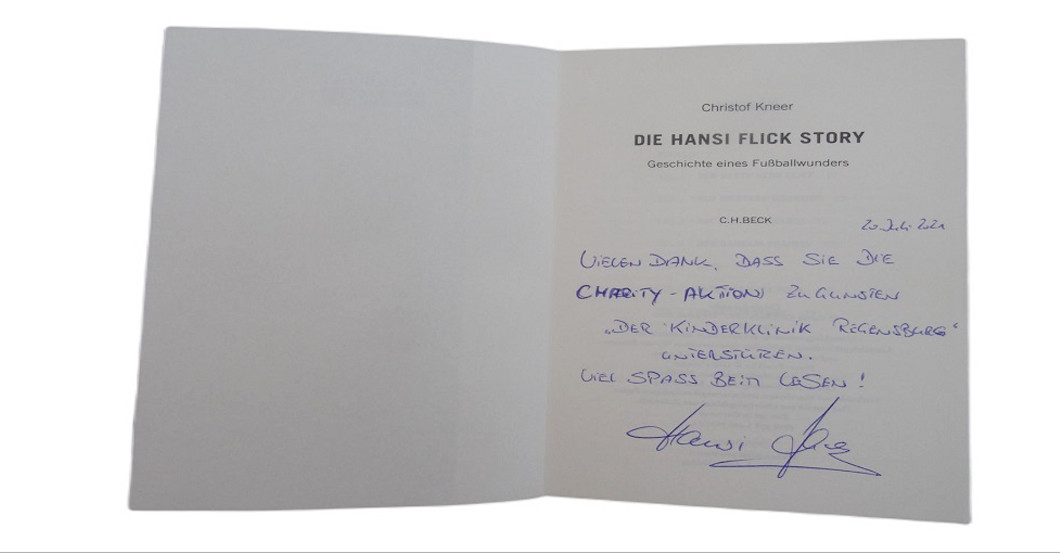 Christof Kneer
DIE HANSI FLICK STORY
Geschichte eines Fußballwunders
C.H.BECK
20. Juli 2021
VIELEN DANK, DASS SIE DIE
CHARITY-AKTION ZUGUNSTEN
„DER KINDERKLINIK REGENSBURG“
UNTERSTÜZEN.
VIEL SPASS BEIM LESEN!
Hansi Flick